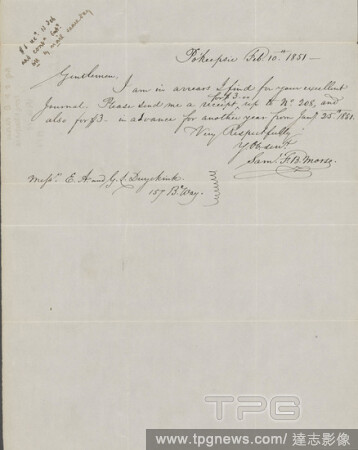 Pokeepsie Feb 10.th 1851 —
Gentlemen,
I am in arrears I find for your excellent
for $3
Journal. Please send me a receipt, up to No. 208, and
also for $3 — in advance for another year from Jany 25th 1851.
Very Respectfully
Yr Ob. servt
Saml. F. B. Morse
Messrs. E. A and G. L Duyckink
157 B.way.
TPG
www.tpgnews.com/達志影像